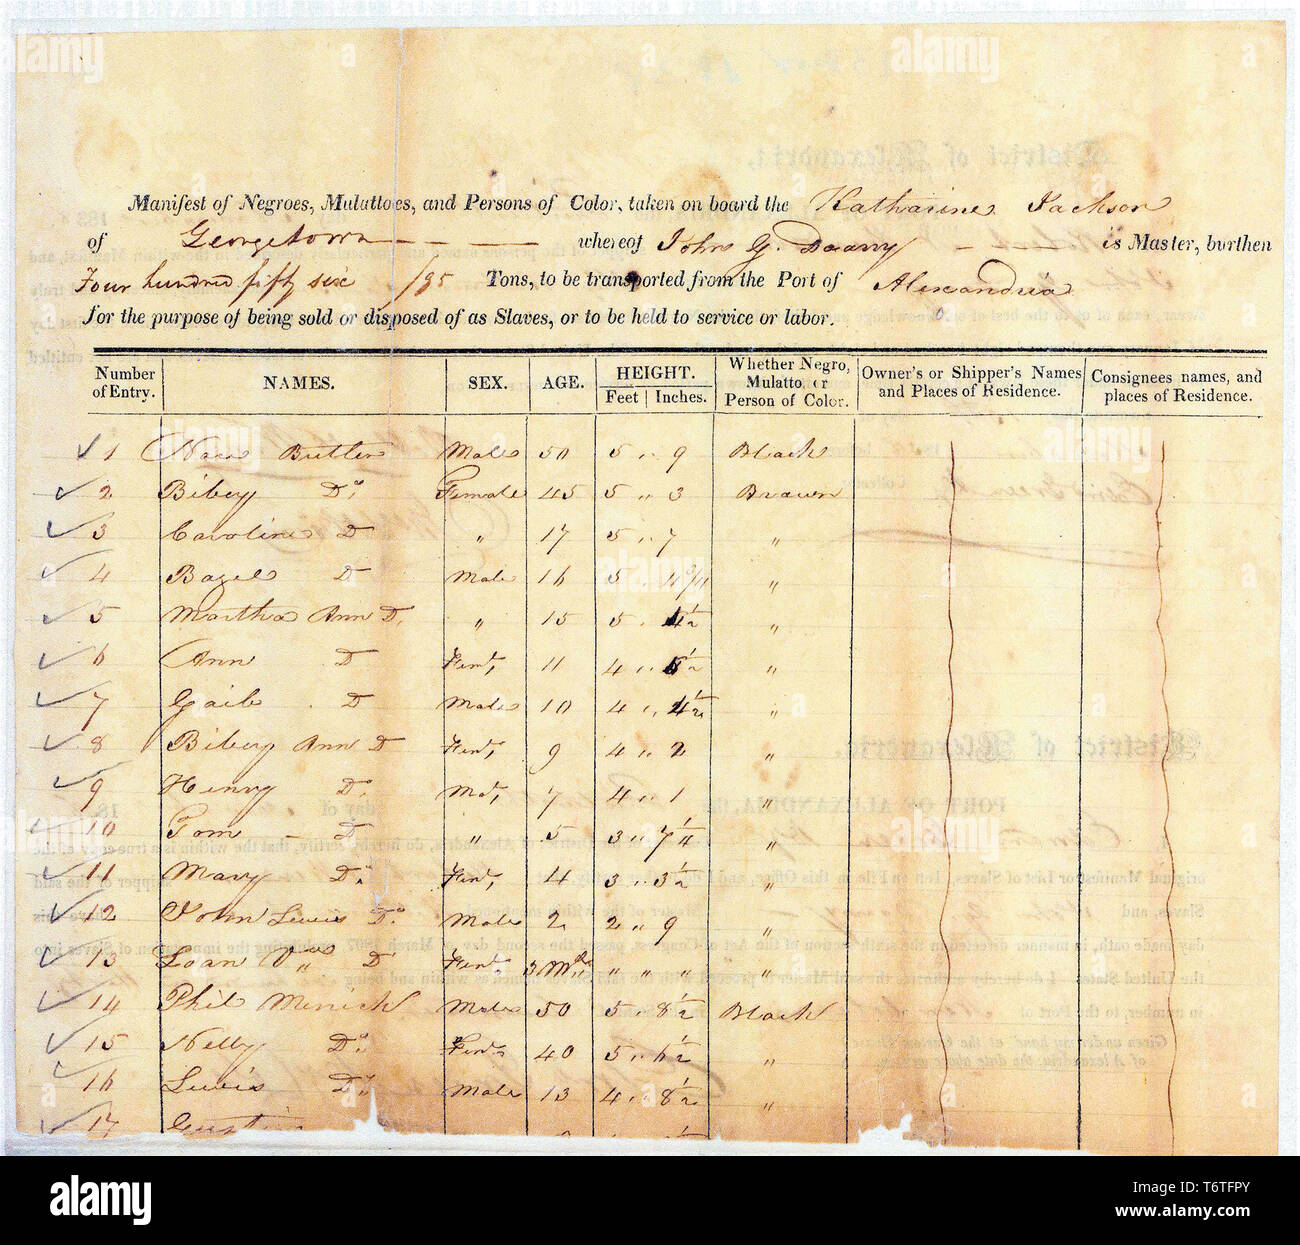 Manifest of Negroes, Mulattoes, and Persons of Color, taken on board the Katharine Jackson
of Georgetown whereof John G. is Master, burthen
Four hundred fifty six /95 Tons, to be transported from the Port of Alexandria
for the purpose of being sold or disposed of as Slaves, or to be held to service or labor.
Number of Entry. NAMES. SEX. AGE. HEIGHT. Feet Inches. Whether Negro, Mulatto, or Person of Color. Owner's or Shipper's Names and Places of Residence. Consignees names, and places of Residence.
1 Nace Butler Male 50 5 „ 9 Black
2 Bibey Do. Female 45 5 „ 3 Brown
3 Caroline D „ 17 5 „ 7 „
4 Bazel D Male 16 5 „ „
5 Martha Ann D. „ 15 5 „ 4½ „
6 Ann D Fem, 11 4 „ 5½ „
7 Gaib D Male 10 4 „ 4½ „
8 Bibey Ann D Fem, 9 4 „ 2 „
9 Henry D. Mal, 7 4 „ 1 „
10 Tom D. „ 5 3 „ 7¼ „
11 Mary Do. Fem, 4 3 „ 3½ „
12 John Lewis Do. Male 2 2 „ 9 „
13 D Fem, 3 Mths „ „ „ „
14 Phil Menick Male 50 5 „ 8½ Black
15 Nelly Do. Fem. 40 5 „ 6½ „
16 Lewis Do. Male 13 4 „ 8½ „
17
alamy
Image ID: T6TFPY
www.alamy.com